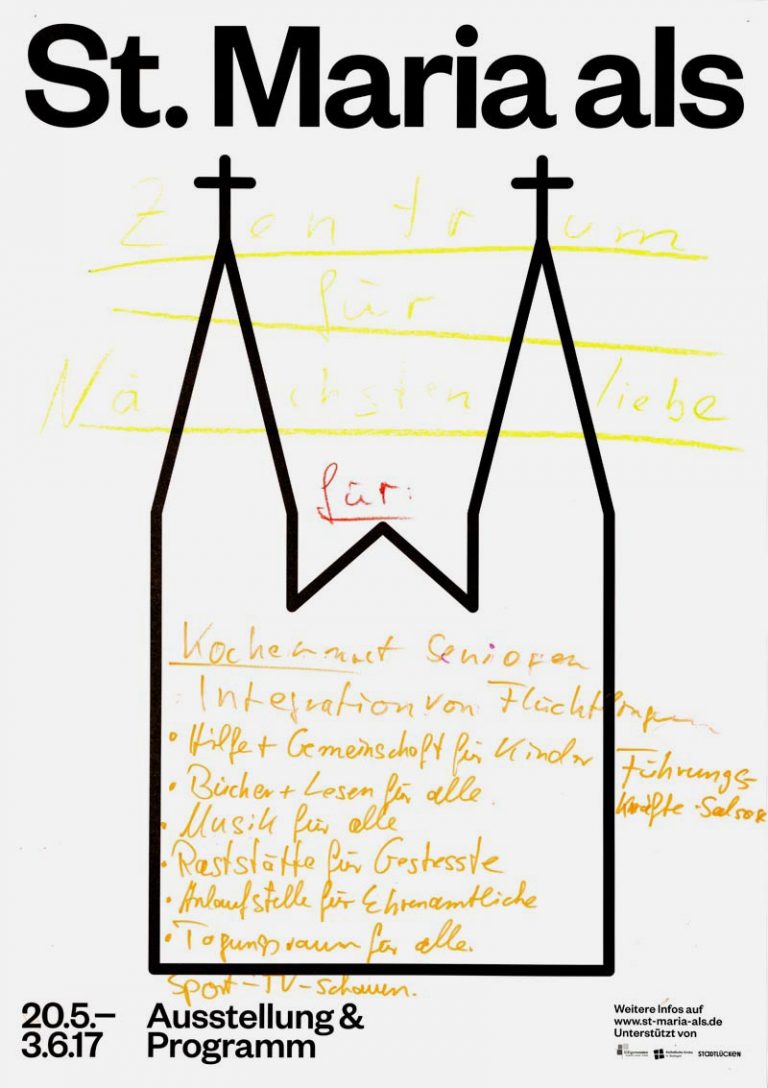 St. Maria als
Zentrum
für
Nächstenliebe
für:
Kochen mit Senioren
Integration von Flüchtlingen
• Hilfe + Gemeinschaft für Kinder
Führungs-
kräfte
• Bücher + Lesen für alle.
• Musik für alle
• Raststätte für Gestresste
• Anlaufstelle für Ehrenamtliche
• Tagungsraum für alle.
Sport-TV-schauen.
20.5.–
3.6.17
Ausstellung &
Programm
Weitere Infos auf
www.st-maria-als.de
Unterstützt von
STADTLÜCKEN